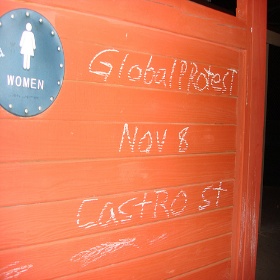 WOMEN
Global PRotesT
Nov 8
CastRO st